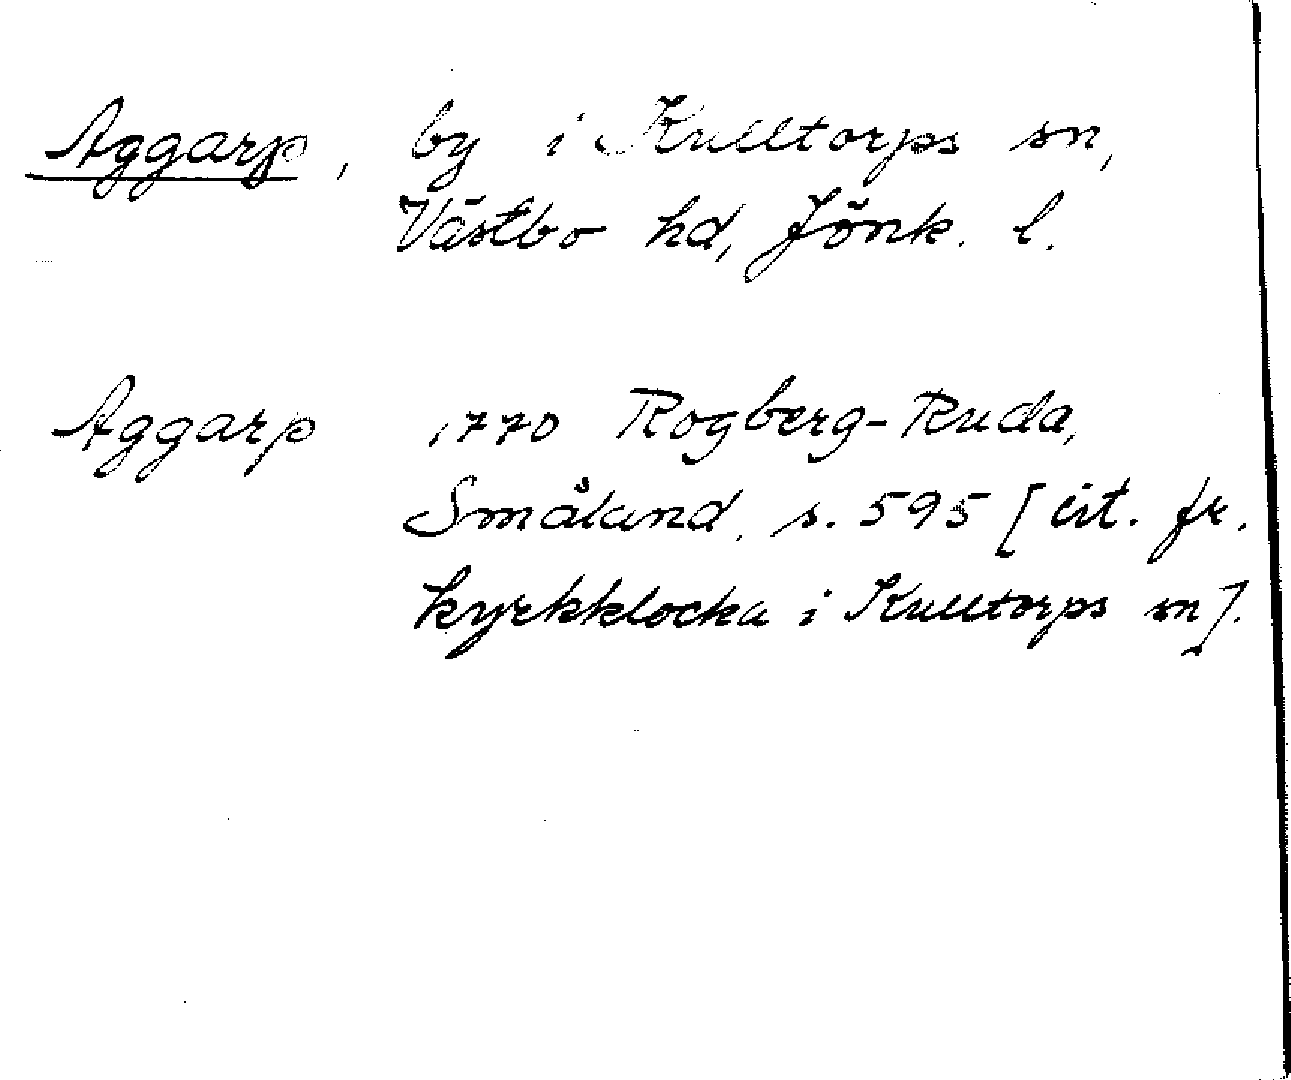 Aggarp, by i Kulltorps sn,
Västbo hd, Jönk. l.
Aggarp 1770 Rogberg-Ruda,
Småland, s. 595 [cit. fr.
kyrkklocka i Kulltorps sn].